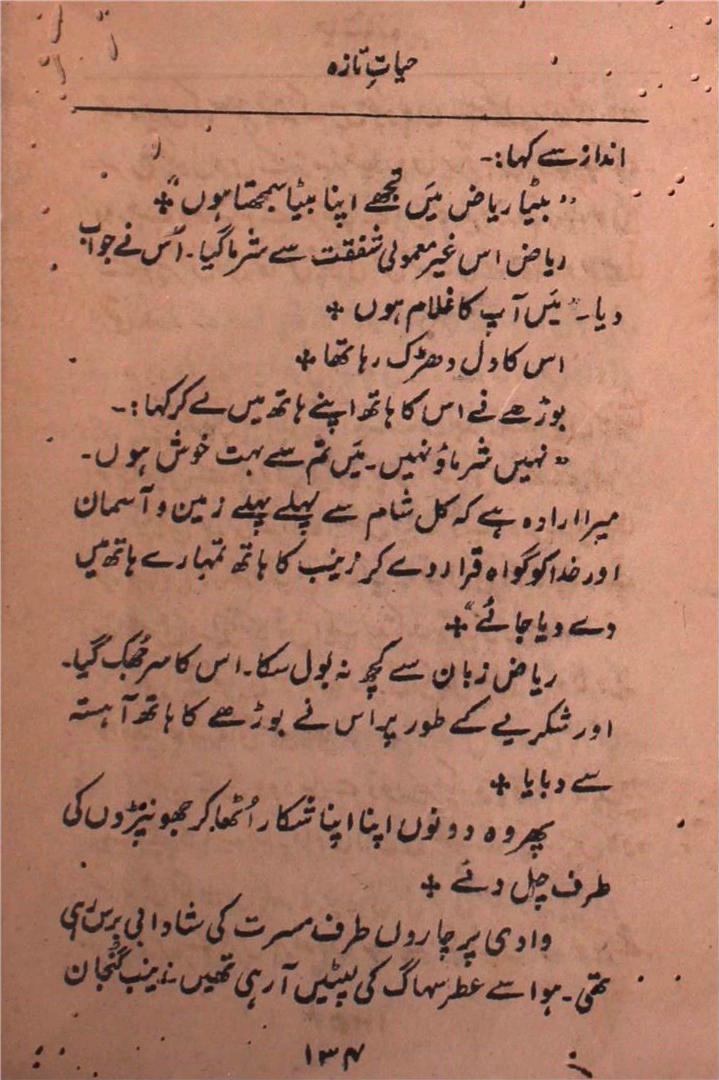 حیاتِ تازہ
انداز سے کہا:۔
"بیٹا ریاض میَں تجھے اپنا بیٹا سمجھتا ہوں"+
ریاض اس غیر معمولی شفقت سے شرما گیا۔ اُس نے جواب
دیا۔ "میَں آپ کا غلام ہوں +
اس کا دل دھڑک رہا تھا +
بوڑھے نے اس کا ہاتھ اپنے ہاتھ میں لے کر کہا:۔
"نہیں شرماؤ نہیں۔ میَں تم سے بہت خوش ہوں۔
میرا ارادہ ہے کہ کل شام سے پہلے پہلے زمین و آسمان
اور خدا کو گواہ قرار دے کر زینب کا ہاتھ تمہارے ہاتھ میں
دے دیا جائے"+
ریاض زبان سے کچھ نہ بول سکا۔ اس کا سر جُھک گیا۔
اور شکریے کے طور پر اس نے بوڑھے کا ہاتھ آہستہ
سے دبایا +
پھر وہ دونوں اپنا اپنا شکار اُٹھا کر جھونپڑوں کی
طرف چل دئے +
وادی پر چاروں طرف مسرت کی شادابی برس رہی
تھی۔ ہوا سے عطر سہاگ کی لپٹیں آ رہی تھیں۔ زینب گنجان
۱۳۴